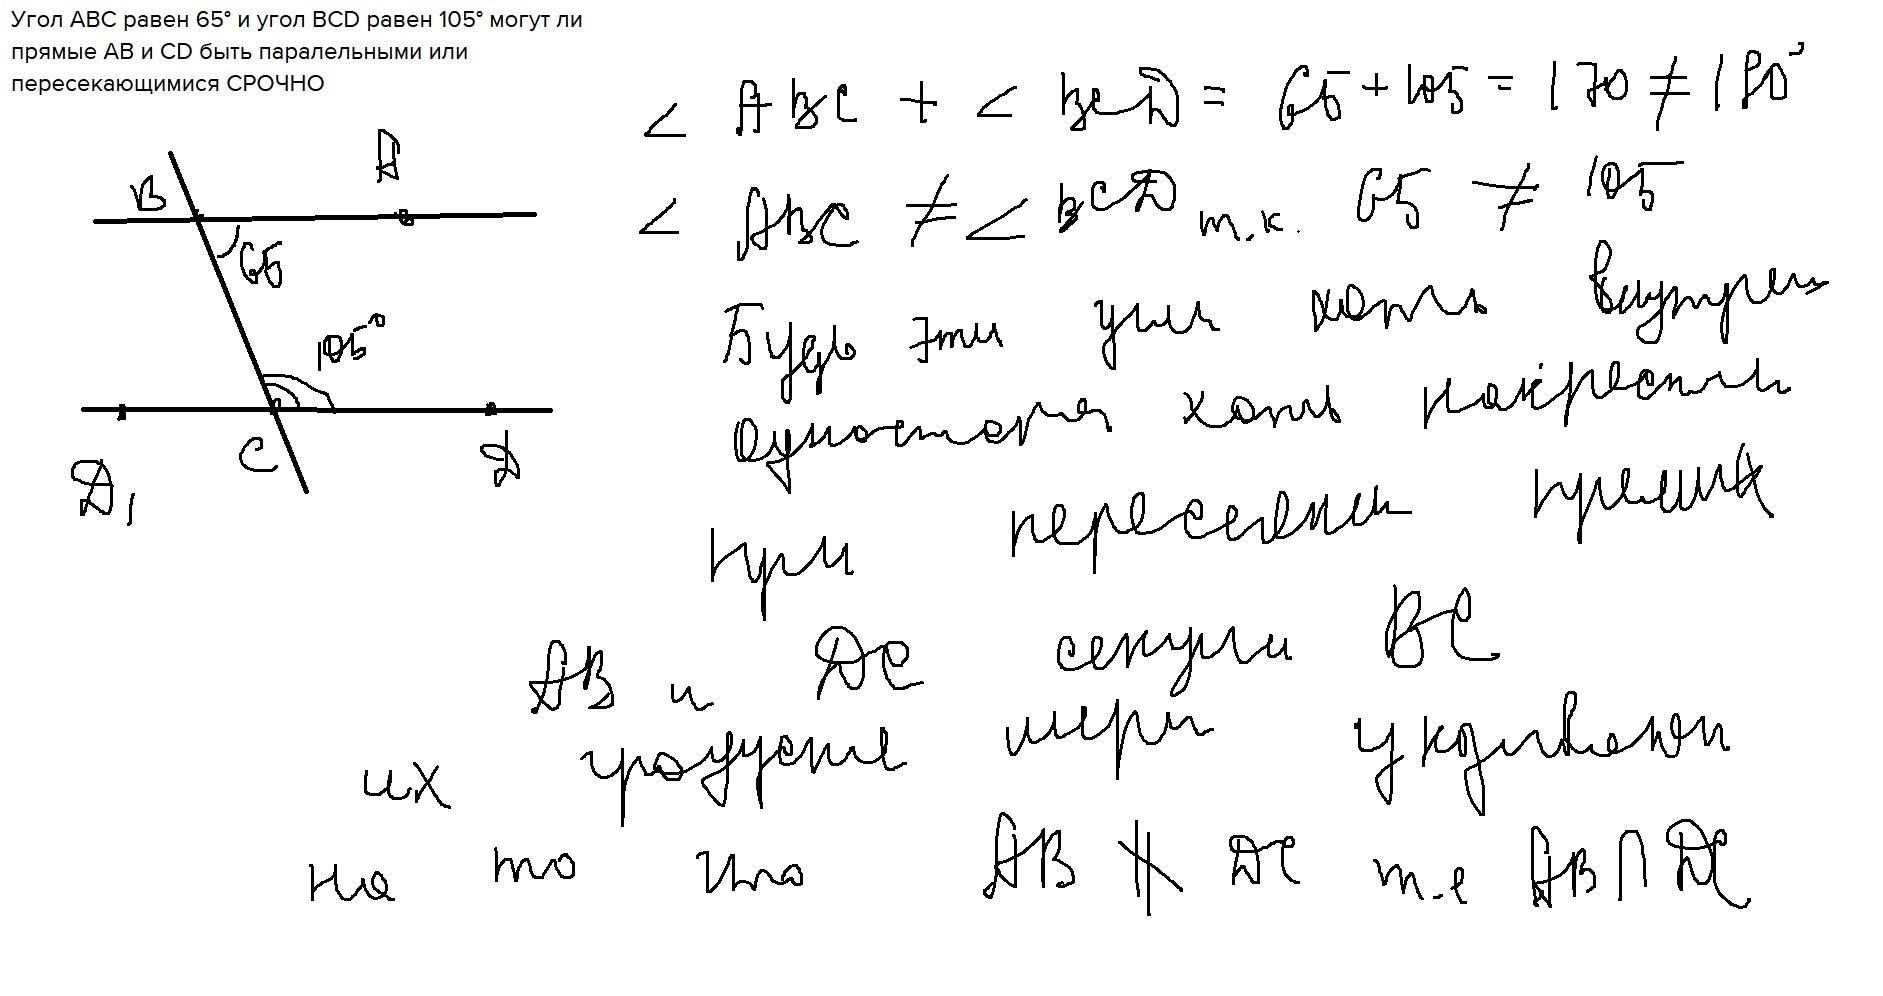 Угол ABC равен 65° и угол BCD равен 105° могут ли
прямые AB и CD быть паралельными или
пересекающимися СРОЧНО
∠ ABC + ∠ BCD = 65 + 105 = 170 ≠ 180°
∠ ABC ≠ ∠ BCD т.к. 65 ≠ 105
B A
65
105°
C
D₁ D
Будь эти углы хоть внутрен
односторон хоть накрестли
при пересечении прямых
AB и DC секущи BC
их градусные меры указывают
на то что AB ∦ DC т.е AB ∩ DC